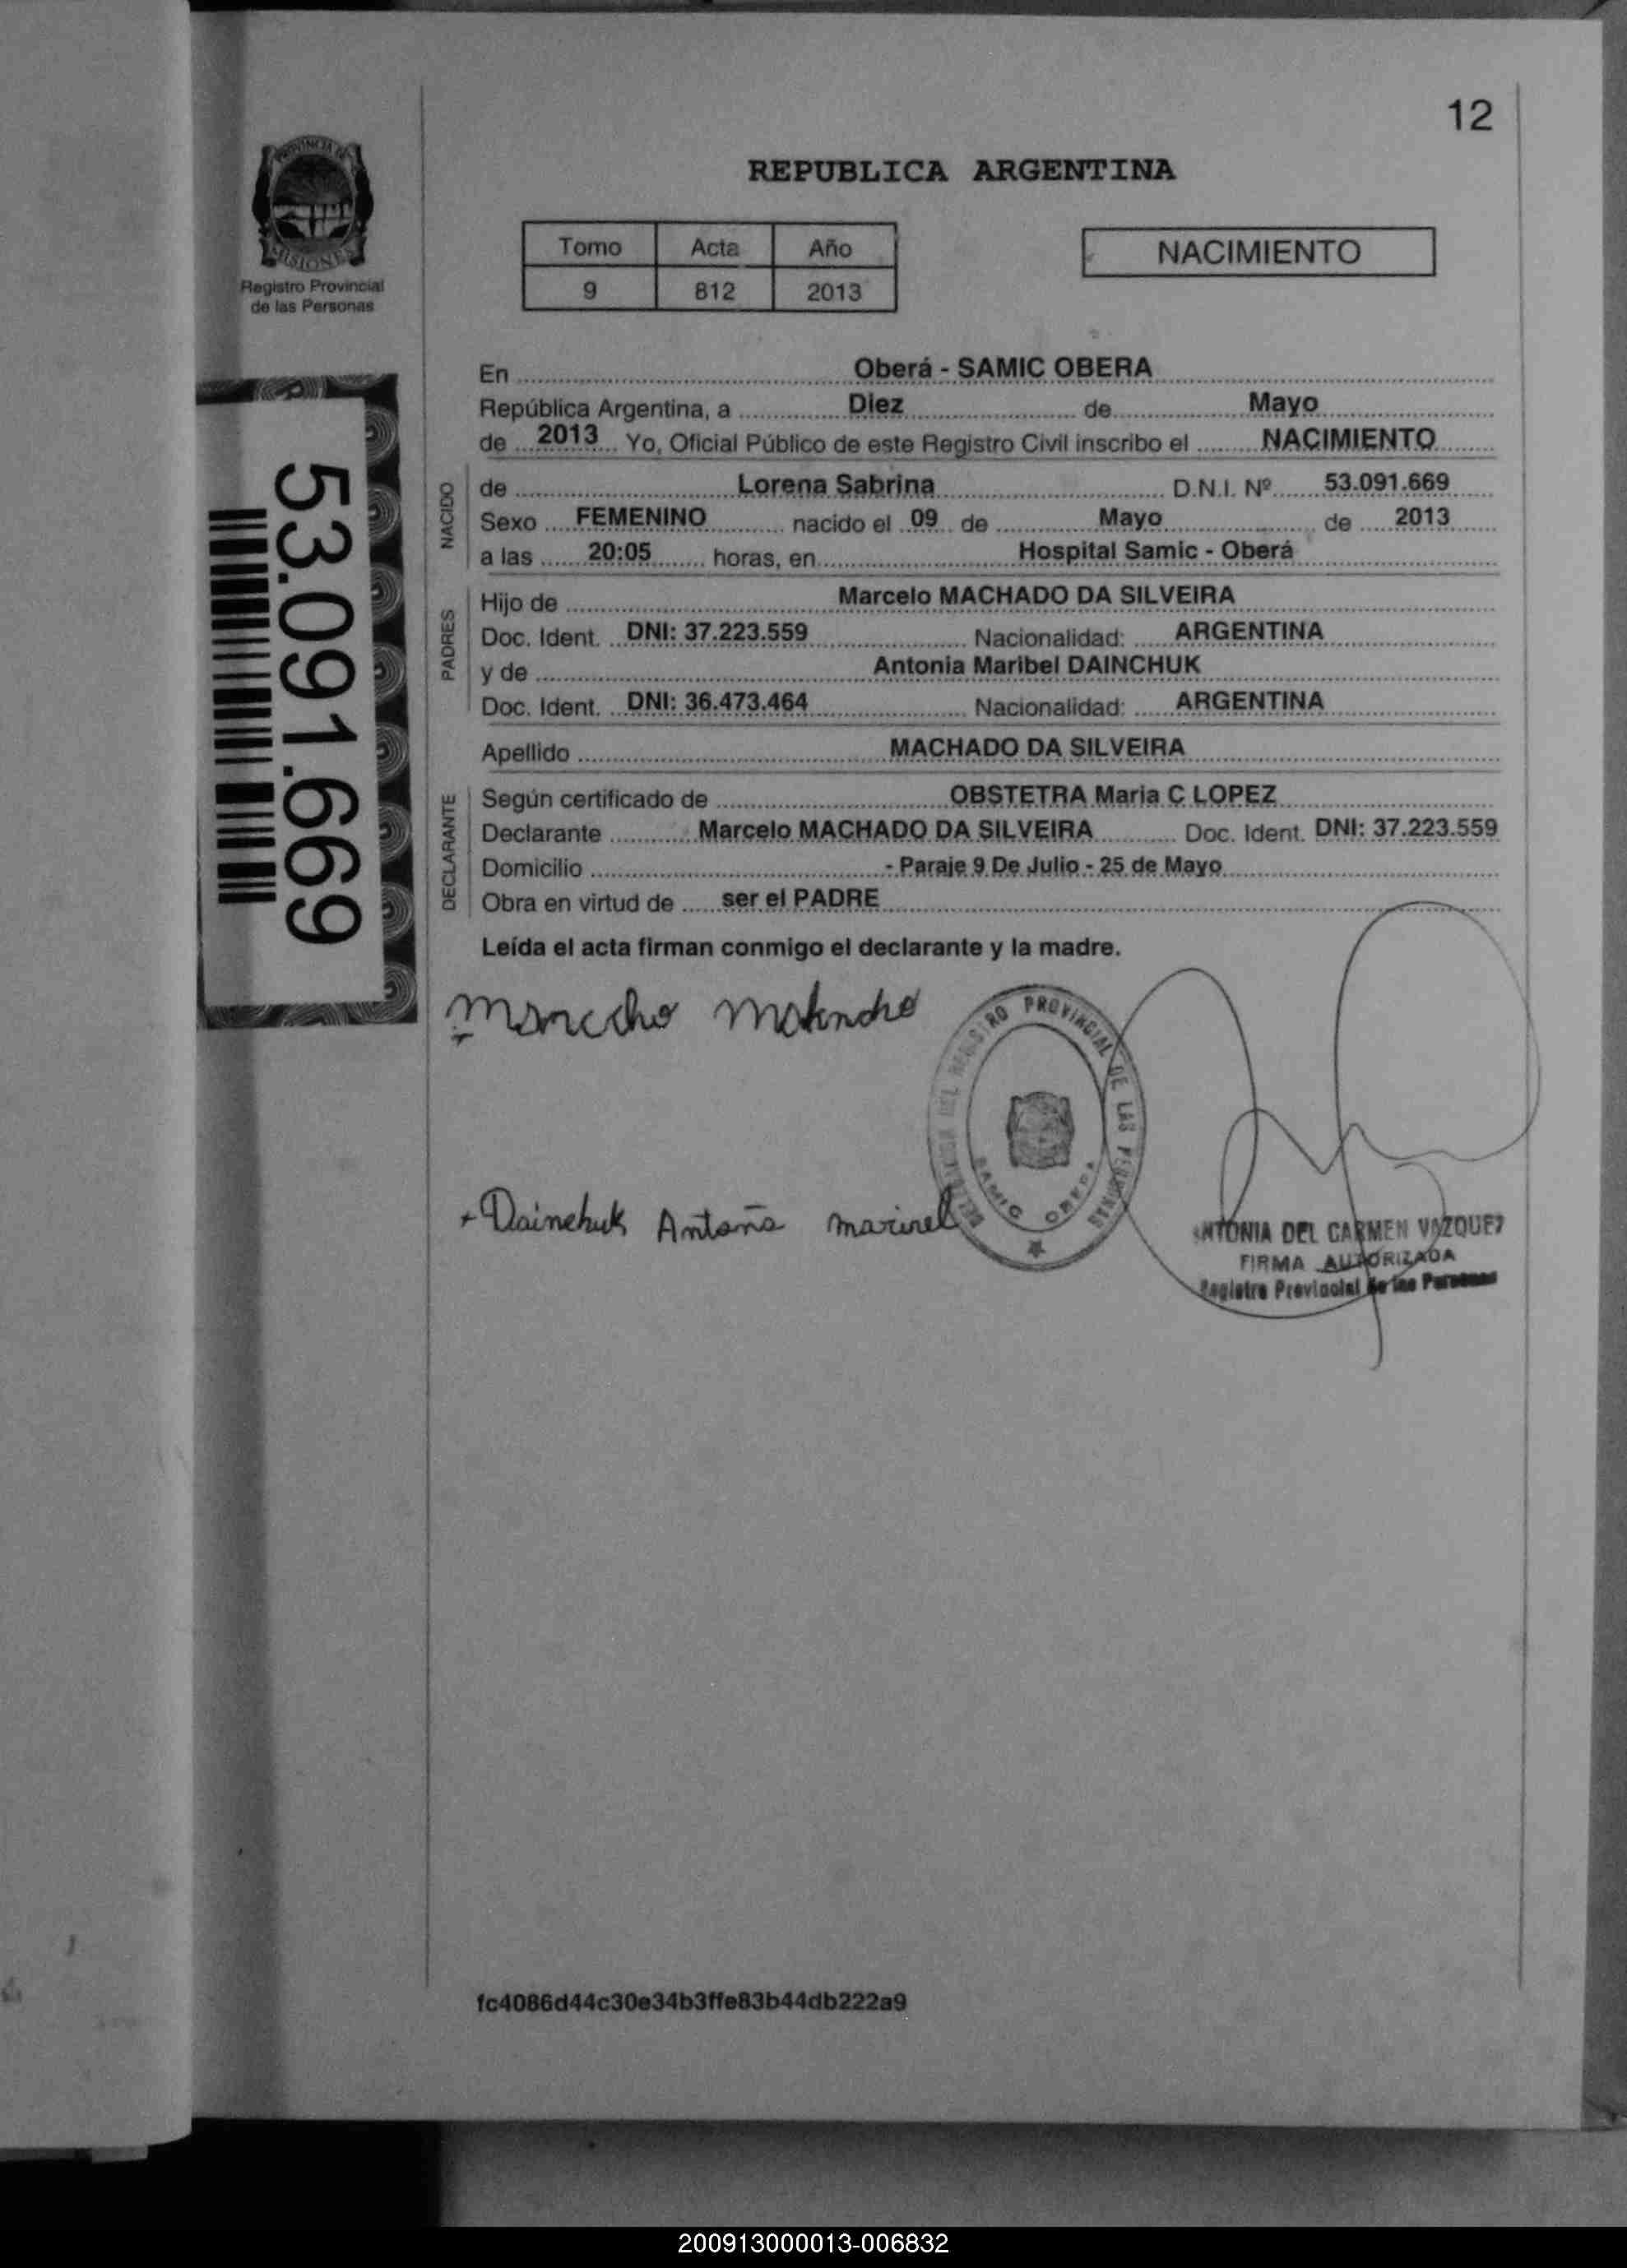 12
REPUBLICA ARGENTINA
PROVINCIA DE
MISIONES
Registro Provincial
de las Personas
Tomo Acta Año
9 812 2013
NACIMIENTO
En Oberá - SAMIC OBERA
República Argentina, a Diez de Mayo
de 2013 Yo, Oficial Público de este Registro Civil inscribo el NACIMIENTO
NACIDO
de Lorena Sabrina D.N.I. Nº 53.091.669
Sexo FEMENINO nacido el 09 de Mayo de 2013
a las 20:05 horas, en Hospital Samic - Oberá
PADRES
Hijo de Marcelo MACHADO DA SILVEIRA
Doc. Ident. DNI: 37.223.559 Nacionalidad: ARGENTINA
y de Antonia Maribel DAINCHUK
Doc. Ident. DNI: 36.473.464 Nacionalidad: ARGENTINA
Apellido MACHADO DA SILVEIRA
DECLARANTE
Según certificado de OBSTETRA Maria C LOPEZ
Declarante Marcelo MACHADO DA SILVEIRA Doc. Ident. DNI: 37.223.559
Domicilio - Paraje 9 De Julio - 25 de Mayo
Obra en virtud de ser el PADRE
Leída el acta firman conmigo el declarante y la madre.
53.091.669
DEL REGISTRO PROVINCIAL DE LAS PERSONAS
SAMIC OBERA
Dainchuk Antoña
ANTONIA DEL CARMEN VAZQUEZ
FIRMA AUTORIZADA
Registro Provincial de las Personas
fc4086d44c30e34b3ffe83b44db222a9
200913000013-006832